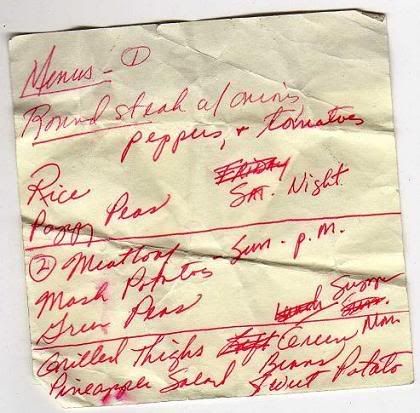 Menus - ①
Round steak w/ onions
peppers, + tomatoes
Rice
Friday
Sat. Night
Peas
② Meatloaf - Sun. p.m.
Mash Potatoes
Green Peas
Grilled Thighs Green Mon
Pineapple Salad Beans
Sweet Potato